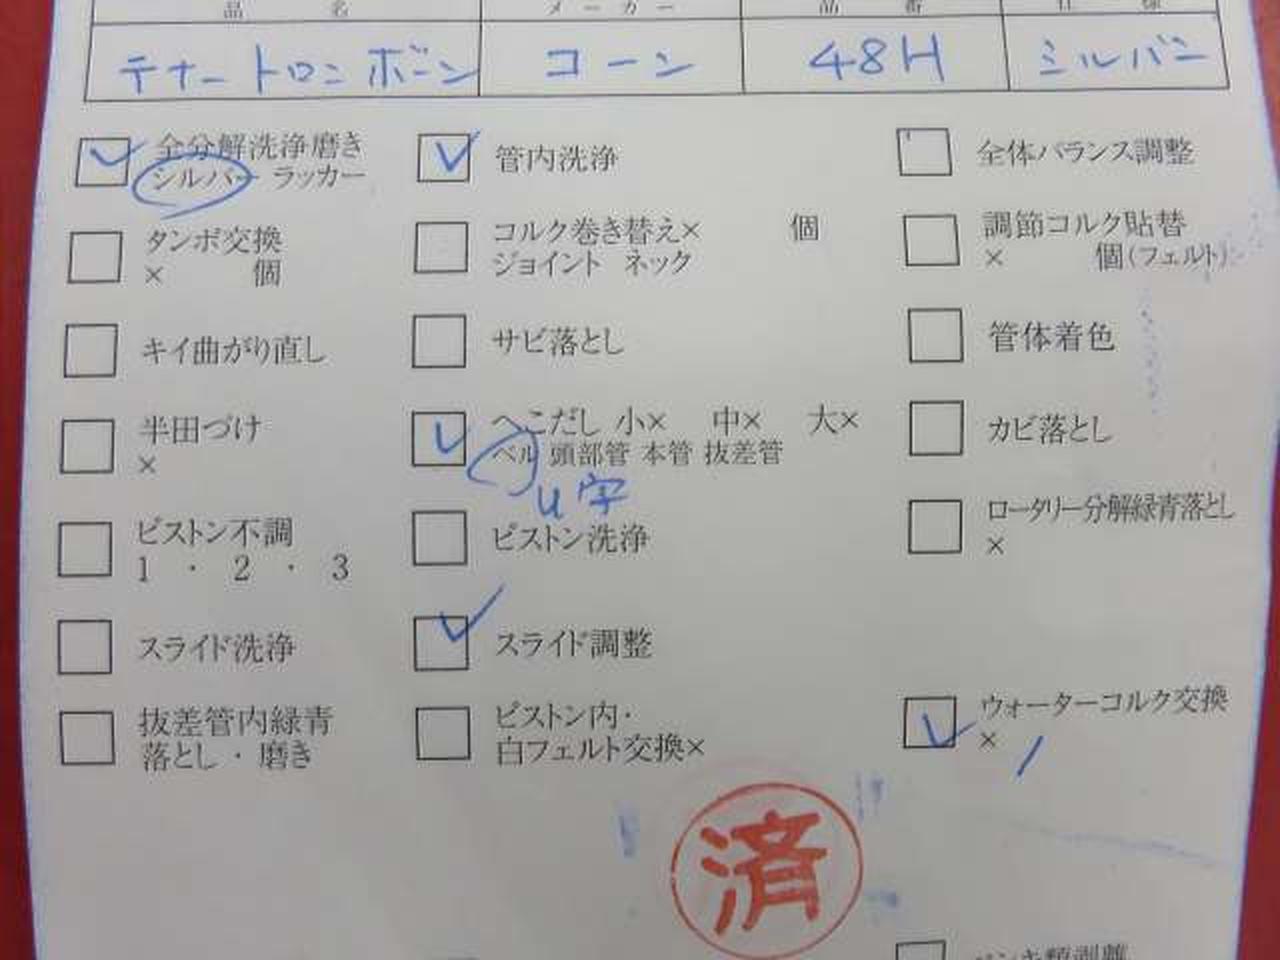 品名 メーカー 品番 仕様
テナートロンボーン コーン 48H シルバー
全分解洗浄磨き
シルバー ラッカー
管内洗浄
全体バランス調整
タンポ交換
× 個
コルク巻き替え× 個
ジョイント ネック
調節コルク貼替
× 個(フェルト)
キイ曲がり直し
サビ落とし
管体着色
半田づけ
×
へこだし 小× 中× 大×
ベル 頭部管 本管 抜差管
U字
カビ落とし
ピストン不調
1 ・ 2 ・ 3
ピストン洗浄
ロータリー分解緑青落とし
×
スライド洗浄
スライド調整
抜差管内緑青
落とし・磨き
ピストン内・
白フェルト交換×
ウォーターコルク交換
× 1
済